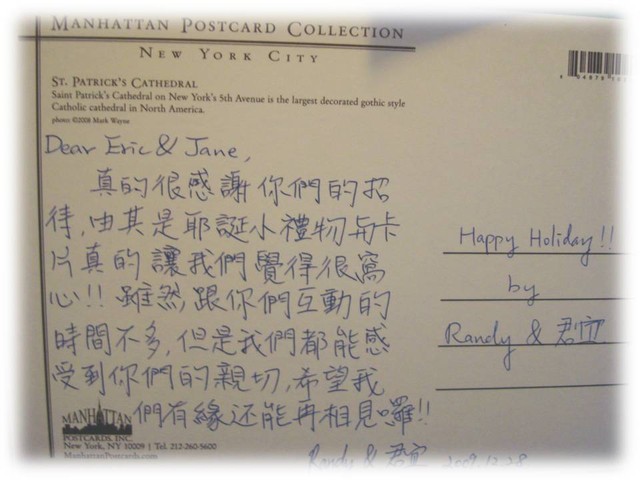 MANHATTAN POSTCARD COLLECTION
NEW YORK CITY
ST. PATRICK'S CATHEDRAL
Saint Patrick's Cathedral on New York's 5th Avenue is the largest decorated gothic style
Catholic cathedral in North America.
photo: ©2008 Mark Wayne
Dear Eric & Jane,
真的很感謝你們的招
待,由其是耶誕小禮物與卡
片真的讓我們覺得很窩
心!! 雖然跟你們互動的
時間不多,但是我們都能感
受到你們的親切,希望我
們有緣还能再相見囉!!
Randy & 君宜 2009.12.28
MANHATTAN
POSTCARDS, INC.
New York, NY 10009 | Tel. 212-260-5600
ManhattanPostcards.com
Happy Holiday!!
by
Randy & 君宜